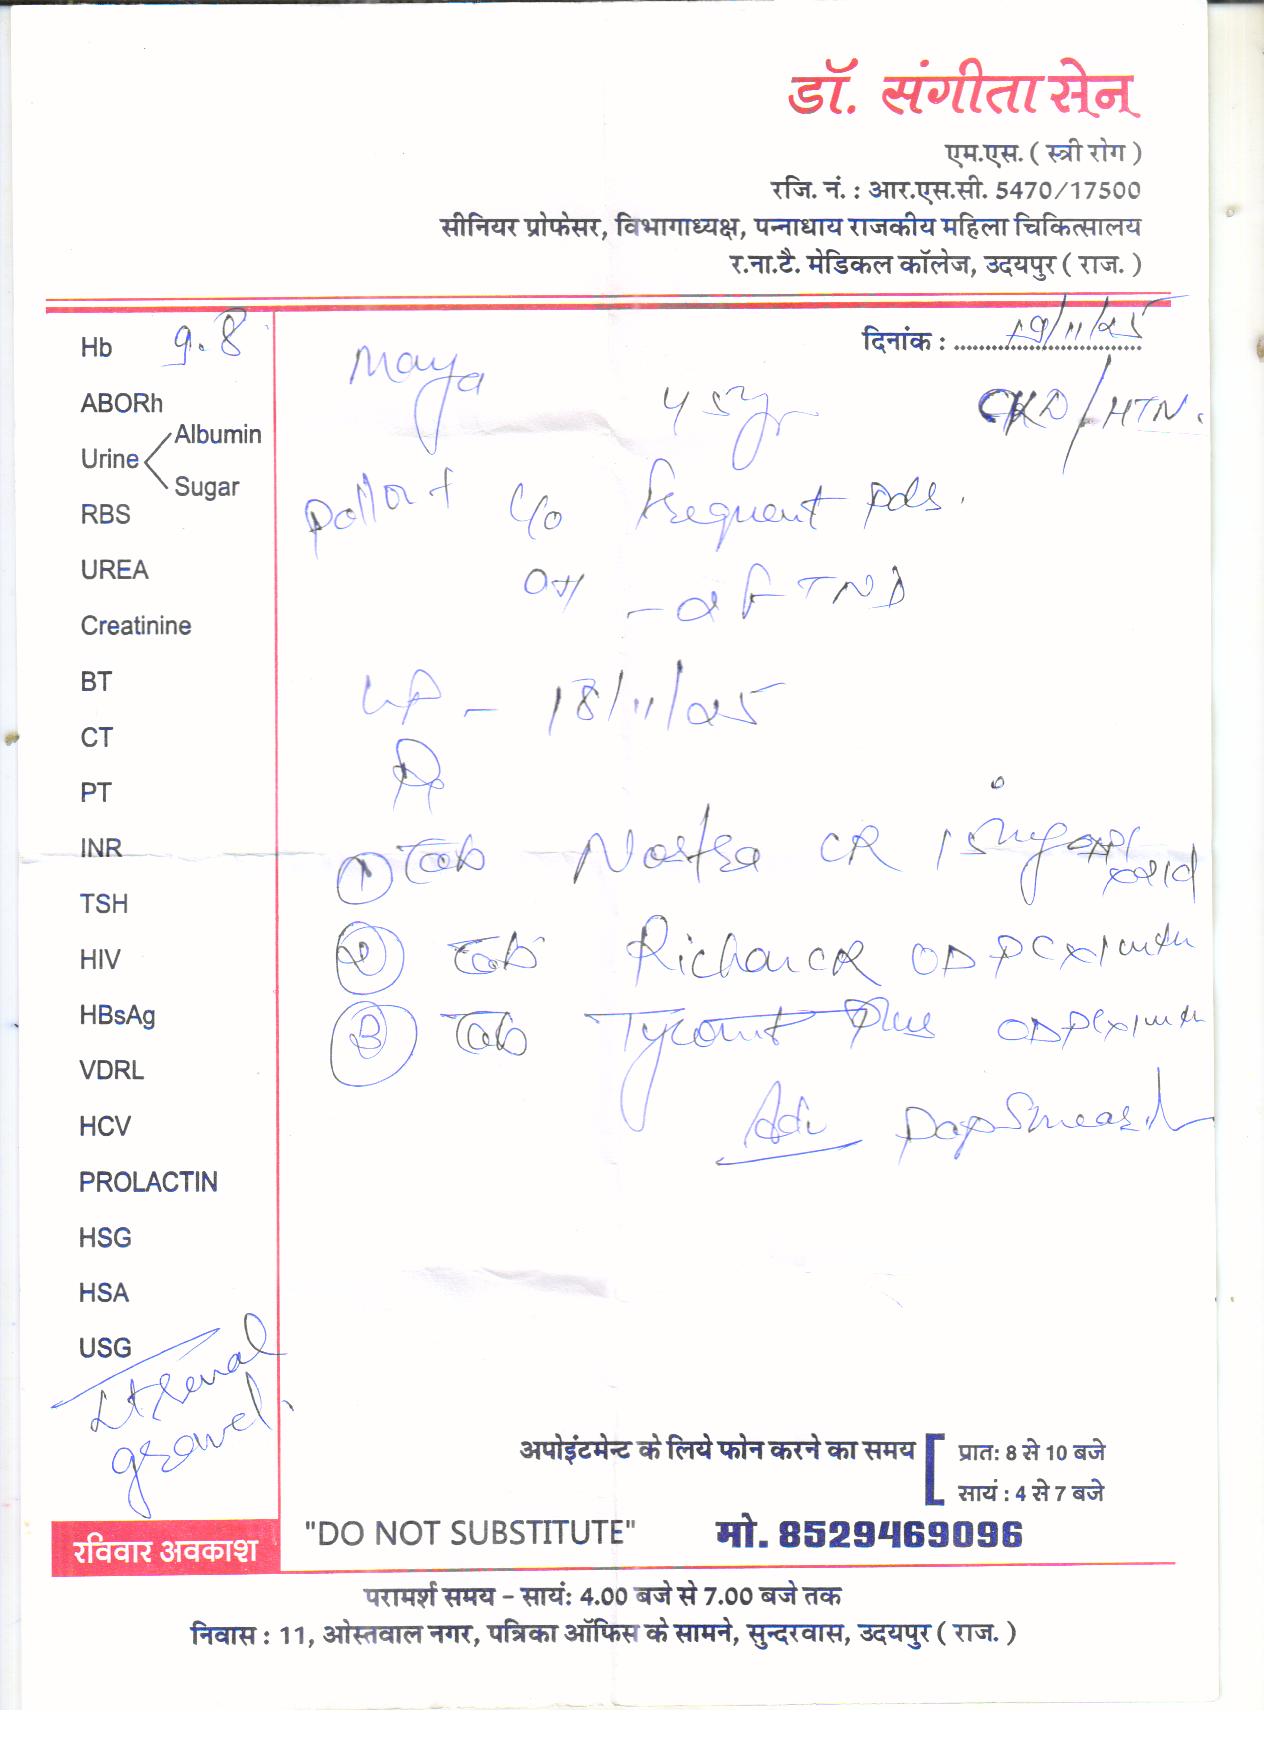 डॉ. संगीता सेन
एम.एस. ( स्त्री रोग )
रजि. नं. : आर.एस.सी. 5470/17500
सीनियर प्रोफेसर, विभागाध्यक्ष, पन्नाधाय राजकीय महिला चिकित्सालय
र.ना.टै. मेडिकल कॉलेज, उदयपुर ( राज. )
दिनांक : 19/11/25
Hb 9.8
Maya 45yr CKD/HTN.
ABORh
Urine Albumin
Sugar
RBS
c/o frequent pds.
UREA
OH - 2 FTND
Creatinine
BT
LP - 18/11/25
CT
PT
INR
① Tab CR 15mg
TSH
HIV
② Tab Richar CR OD PC x 1 mth
HBsAg
③ Tab Plus OD PC x 1 mth
VDRL
HCV
Adv Pap Smear
PROLACTIN
HSG
HSA
USG
Lt renal
gravel.
अपोइंटमेन्ट के लिये फोन करने का समय
प्रात: 8 से 10 बजे
सायं : 4 से 7 बजे
रविवार अवकाश
"DO NOT SUBSTITUTE" मो. 8529469096
परामर्श समय - सायं: 4.00 बजे से 7.00 बजे तक
निवास : 11, ओस्तवाल नगर, पत्रिका ऑफिस के सामने, सुन्दरवास, उदयपुर ( राज. )